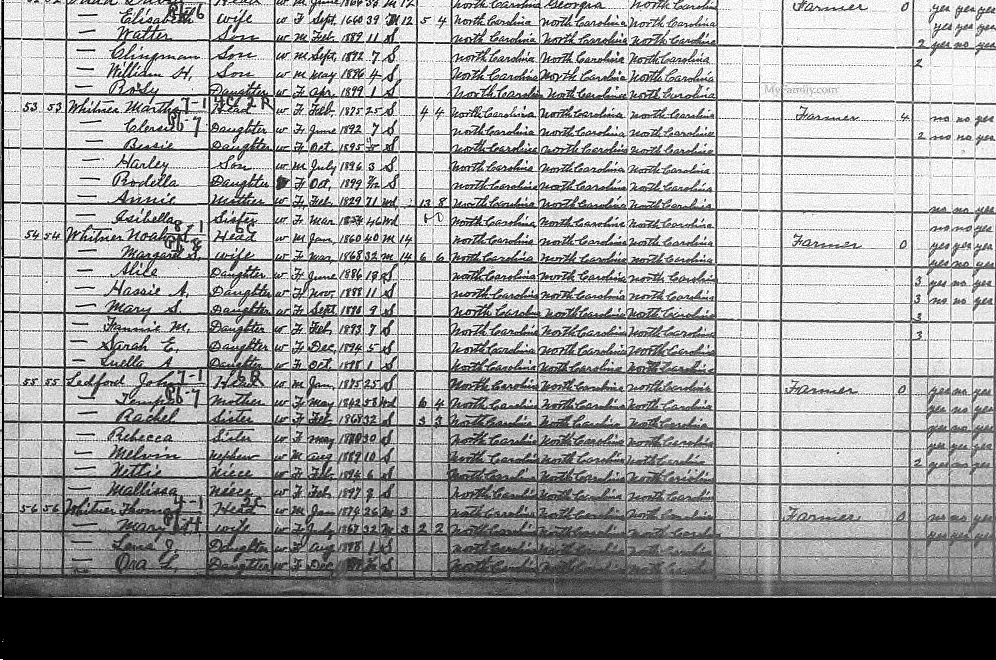 Head North Carolina Georgia North Carolina Farmer 0 yes yes yes
— Elizabeth wife w F Sept 1860 39 M 12 5 4 North Carolina North Carolina North Carolina yes yes yes
— Walter Son w m Feb. 1889 11 S North Carolina North Carolina North Carolina 2 yes no yes
— Clingman Son w m Sept. 1892 7 S North Carolina North Carolina North Carolina 2
— William H. Son w m may 1896 4 S North Carolina North Carolina North Carolina
— Rosly Daughter w F apr. 1899 1 S North Carolina North Carolina North Carolina
53 53 Whitner Martha Head w F Feb. 1875 25 S 4 4 North Carolina North Carolina North Carolina Farmer 4 no no yes
— Daughter w F June 1892 7 S North Carolina North Carolina North Carolina 2 no no yes
— Bessie Daughter w F Oct. 1895 S North Carolina North Carolina North Carolina
— Harley Son w m July 1896 3 S North Carolina North Carolina North Carolina
— Rodella Daughter w F Oct. 1899 S North Carolina North Carolina North Carolina
— Annie Mother w F Feb. 1829 71 wd 13 8 North Carolina North Carolina North Carolina no no yes
— Asibella Sister w F Mar. 46 wd North Carolina North Carolina North Carolina no no yes
54 54 Whitner Noah Head w m Jan. 1860 40 M 14 North Carolina North Carolina North Carolina Farmer 0 yes yes yes
— Margaret wife w F mar. 1868 32 m 14 6 6 North Carolina North Carolina North Carolina yes no yes
— Alice Daughter w F June 1886 13 S North Carolina North Carolina North Carolina 3 yes no yes
— Hassie A. Daughter w F Nov. 1888 11 S North Carolina North Carolina North Carolina 3 no no yes
— Mary S. Daughter w F Sept. 1890 9 S North Carolina North Carolina North Carolina 3
— Fannie M. Daughter w F Feb. 1893 7 S North Carolina North Carolina North Carolina 3
— Sarah E. Daughter w F Dec. 1894 5 S North Carolina North Carolina North Carolina
— Luella A Daughter w F Oct. 1898 1 S North Carolina North Carolina North Carolina
55 55 Ledford John Head w m Jan. 1875 25 S North Carolina North Carolina North Carolina Farmer 0 yes no yes
— Mother w F May 1842 58 wd 6 4 North Carolina North Carolina North Carolina yes no yes
— Rachel Sister w F Feb. 1868 32 S 3 3 North Carolina North Carolina North Carolina yes yes yes
— Rebecca Sister w F may 1870 30 S North Carolina North Carolina North Carolina yes yes yes
— Melvin nephew w m aug 1889 10 S North Carolina North Carolina North Carolina 2 yes no yes
— Nettie Niece w F Feb. 1894 6 S North Carolina North Carolina North Carolina
— Mallissa neice w F Feb. 1897 3 S North Carolina North Carolina North Carolina
56 56 Whitner Thomas Head w m Jan 1874 26 m 3 North Carolina North Carolina North Carolina Farmer 0 no no yes
— Mary wife w F July 1867 32 m 3 2 2 North Carolina North Carolina North Carolina yes yes yes
— Lena J. Daughter w F aug 1898 1 S North Carolina North Carolina North Carolina
— Ora L. Daughter w F Dec. S North Carolina North Carolina North Carolina
MyFamily.com